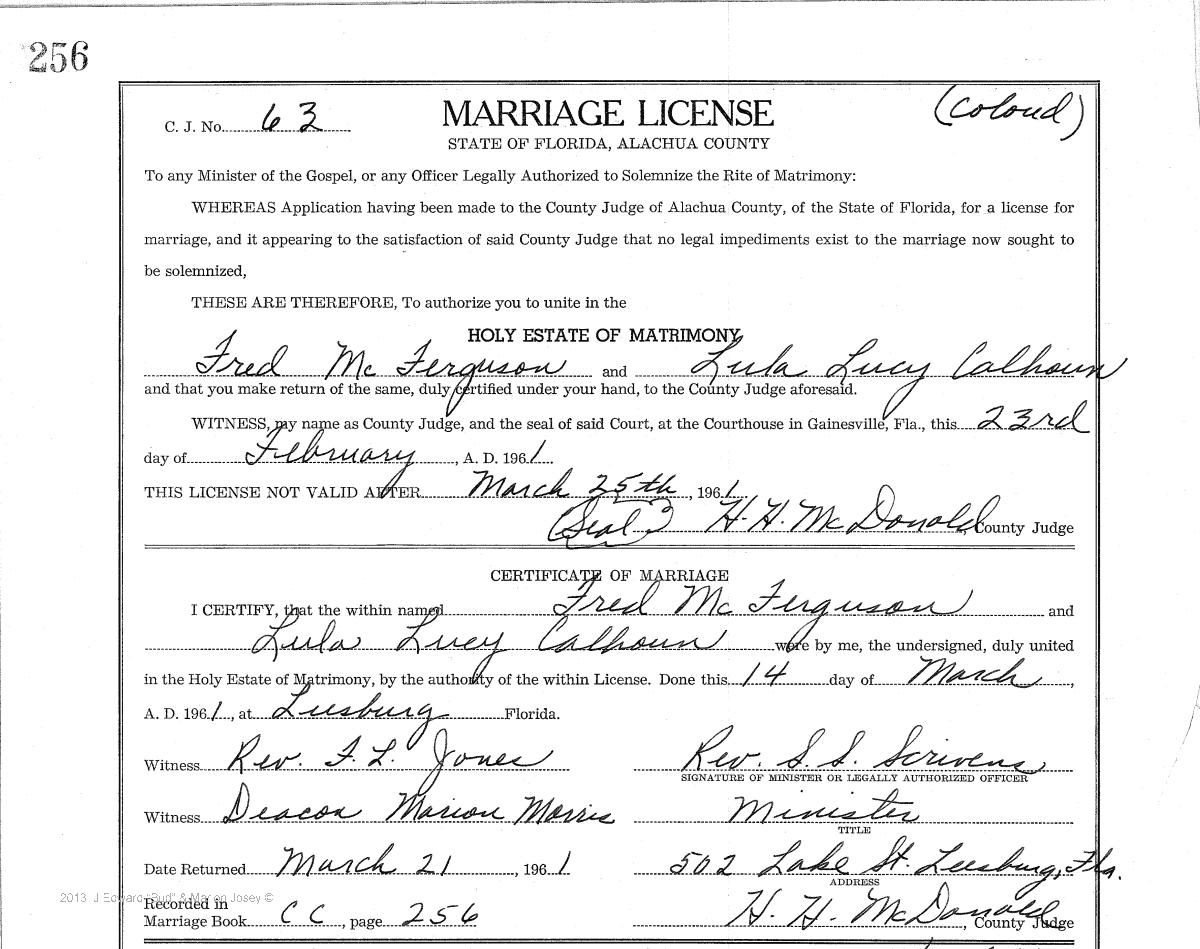 256
C. J. No. 63
MARRIAGE LICENSE
(Colored)
STATE OF FLORIDA, ALACHUA COUNTY
To any Minister of the Gospel, or any Officer Legally Authorized to Solemnize the Rite of Matrimony:
WHEREAS Application having been made to the County Judge of Alachua County, of the State of Florida, for a license for
marriage, and it appearing to the satisfaction of said County Judge that no legal impediments exist to the marriage now sought to
be solemnized,
THESE ARE THEREFORE, To authorize you to unite in the
HOLY ESTATE OF MATRIMONY
Fred Mc Ferguson and Lula Lucy Calhoun
and that you make return of the same, duly certified under your hand, to the County Judge aforesaid.
WITNESS, my name as County Judge, and the seal of said Court, at the Courthouse in Gainesville, Fla., this 23rd
day of February, A. D. 1961.
THIS LICENSE NOT VALID AFTER March 25th, 1961
(Seal) H. H. McDonald, County Judge
CERTIFICATE OF MARRIAGE
I CERTIFY, that the within named Fred Mc Ferguson and
Lula Lucy Calhoun were by me, the undersigned, duly united
in the Holy Estate of Matrimony, by the authority of the within License. Done this 14 day of March,
A. D. 1961, at Leesburg Florida.
Witness Rev. F. L. Jones Rev. S. S. Scrivens
SIGNATURE OF MINISTER OR LEGALLY AUTHORIZED OFFICER
Witness Deacon Marion Morris Minister
TITLE
Date Returned March 21, 1961 502 Lake St. Leesburg, Fla.
ADDRESS
2013 J Edward "Bud" & Marion Josey ©
Recorded in
Marriage Book CC, page 256 H. H. McDonald, County Judge